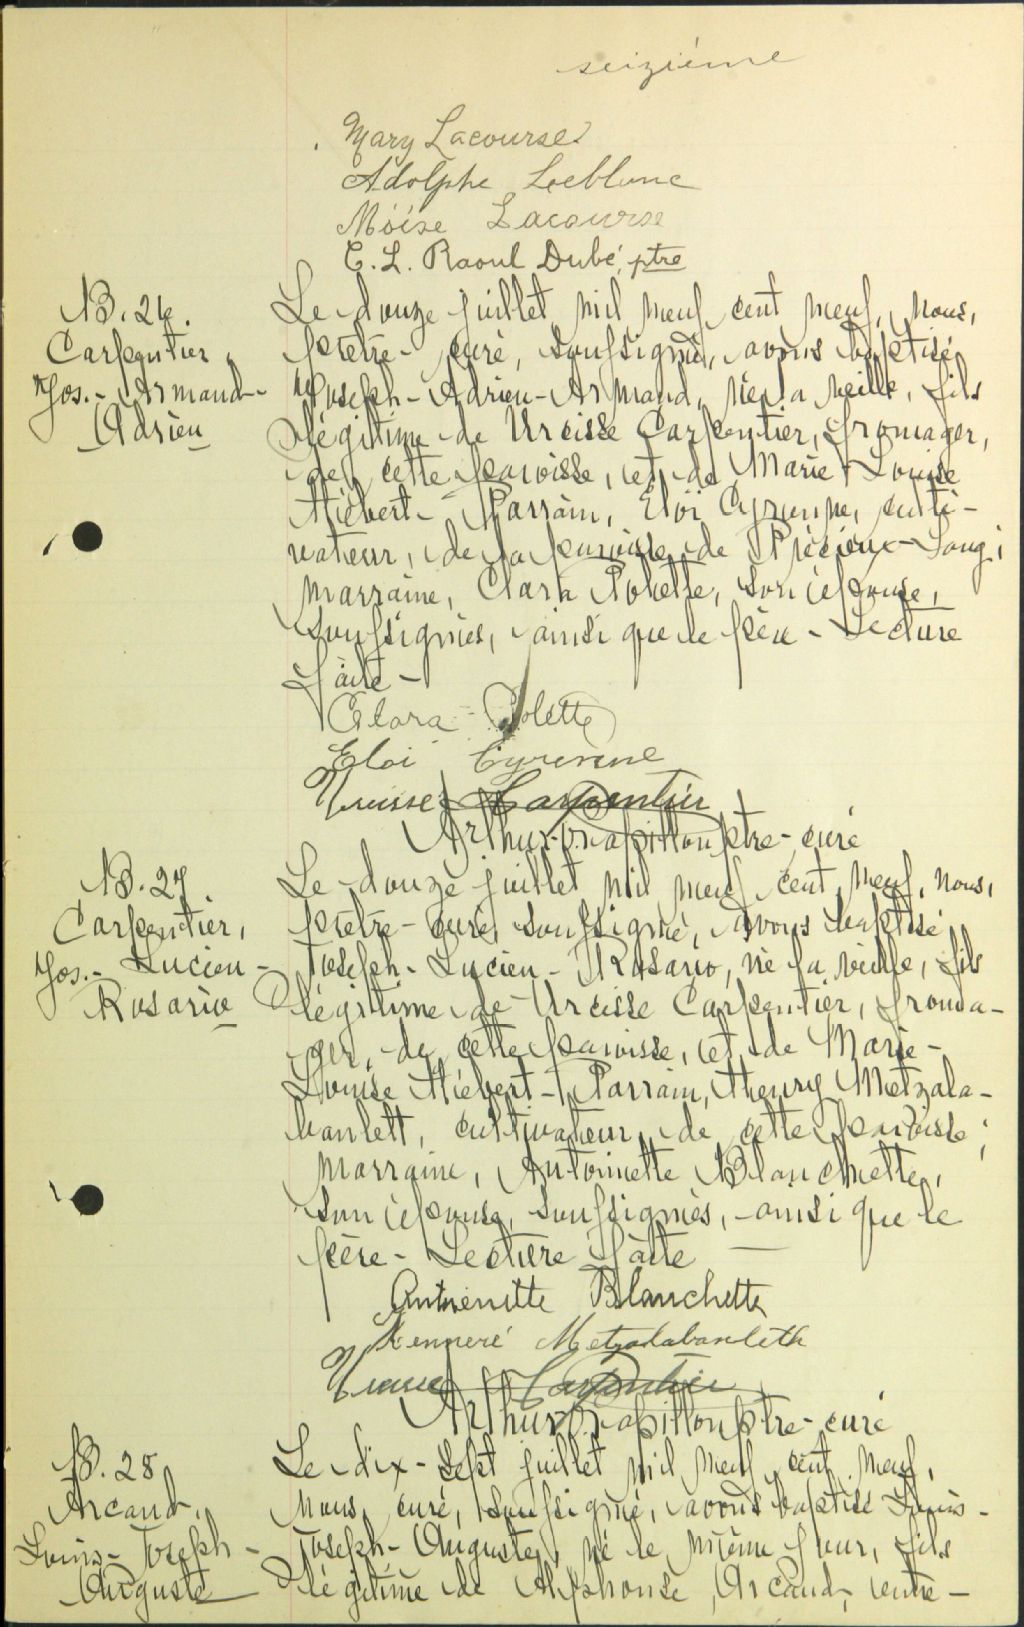 seizième
Mary Lacourse
Adolphe Leblanc
Moïse Lacourse
C. L. Raoul Dubé, ptre
B. 26.
Carpentier
Jos.- Armand-
Adrien
Le douze juillet mil neuf cent neuf, nous,
prêtre-curé, soussigné, avons baptisé
Joseph-Adrien-Armand, né la veille, fils
légitime de Urcisse Carpentier, fromager,
de cette paroisse, et de Marie-Louise
Hébert- Parrain, Eloï Cyrenne, culti-
vateur, de la paroisse de Précieux-Sang;
marraine, Clara Polette, son épouse,
soussignés, ainsi que le père - Lecture
faite -
Clara Polette
Eloi Cyrenne
Carpentier
Arthur Papillon ptre-curé
B. 27
Carpentier,
Jos.- Lucien-
Rosario
Le douze juillet mil neuf cent neuf, nous,
prêtre-curé, soussigné, avons baptisé
Joseph-Lucien-Rosario, né la veille, fils
légitime de Urcisse Carpentier, froma-
ger, de cette paroisse, et de Marie-
Louise Hébert- Parrain, Henry Metzala-
banlett, cultivateur de cette paroisse;
marraine, Antoinette Blanchette,
son épouse, soussignés, ainsi que le
père - Lecture faite
Antoinette Blanchette
Metzalabanleth
Carpentier
Arthur Papillon ptre-curé
B. 28
Arcand,
Louis-Joseph-
Auguste
Le dix-sept juillet mil neuf cent neuf,
nous, curé, soussigné, avons baptisé Louis-
Joseph-Auguste, né le même jour, fils
légitime de Alphonse Arcand, entre-